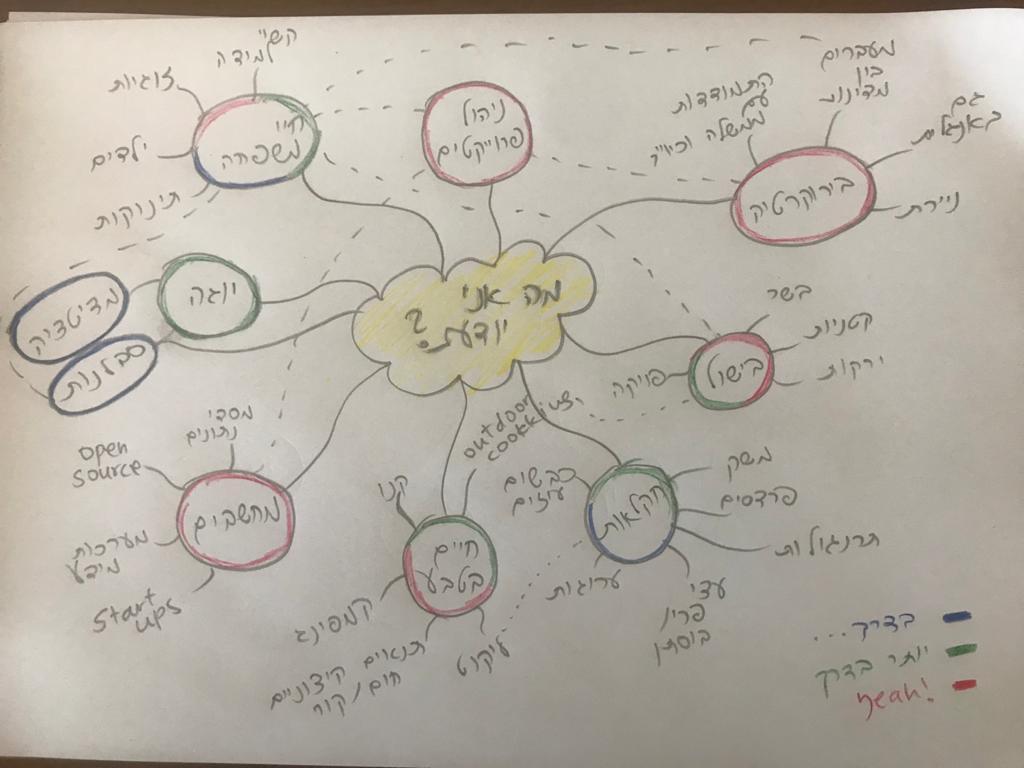 מה אני
יודעת?
קשיי
למידה
זוגיות
ילדים
תינוקות
חיי
משפחה
ניהול
פרוייקטים
מעברים
בין
מדינות
התמודדות
עם
ממשלה
גם
באנגלית
ניירת
בירוקרטיה
יוגה
מדיטציה
סבלנות
בשר
קטניות
ירקות
בישול
פויקה
outdoor
cooking
מסדי
נתונים
open
source
מחשבים
מערכות
מידע
Start
ups
קנו
חיים
בטבע
קמפינג
תנאים קיצוניים
חום/קור
ליקוט
כבשים
עיזים
חקלאות
משק
פרדסים
תרנגולות
עצי
פרי/
בוסתן
ערוגות
בדרך...
יותר בדרך
yeah!